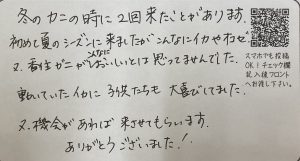 冬のカニの時に2回来たことがあります。
初めて夏のシーズンに来ましたがこんなにイカやホセ
又、香住ガニがこんなにおいしいとは思ってませんでした。
動いていたイカに子供たちも大喜びしてました。
又、機会があれば来させてもらいます。
ありがとうございました!
スマホでも投稿
OK!チェック欄
記入後フロント
へお渡し下さい。